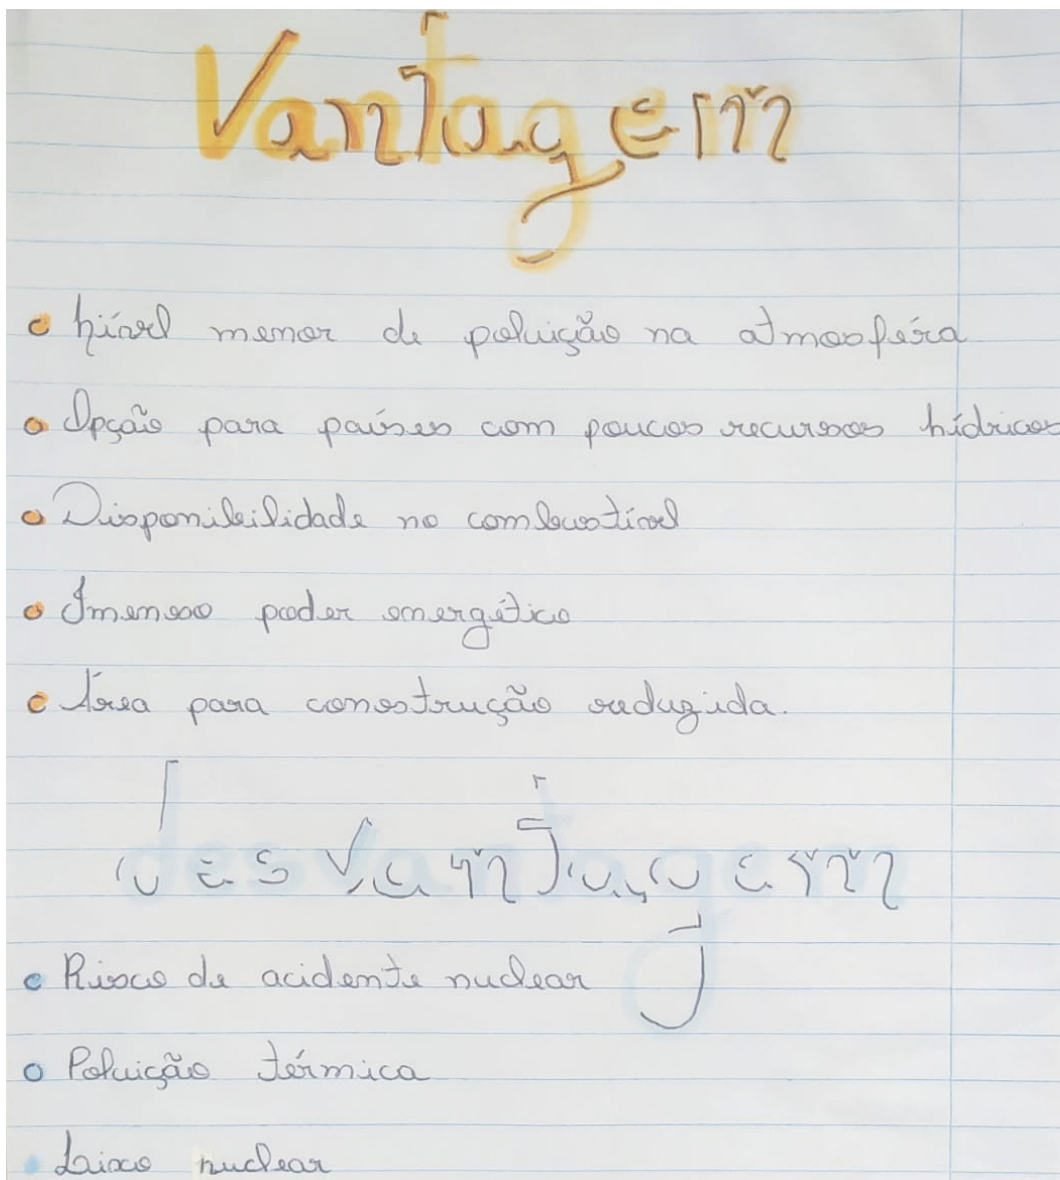 Vantagem
nível menor de poluição na atmosféra
Opção para países com poucos recursos hídricos
Disponibilidade no combustível
Imenso poder energético
Área para construção reduzida.
desvantagem
Risco de acidente nuclear
Poluição térmica
Lixo nuclear